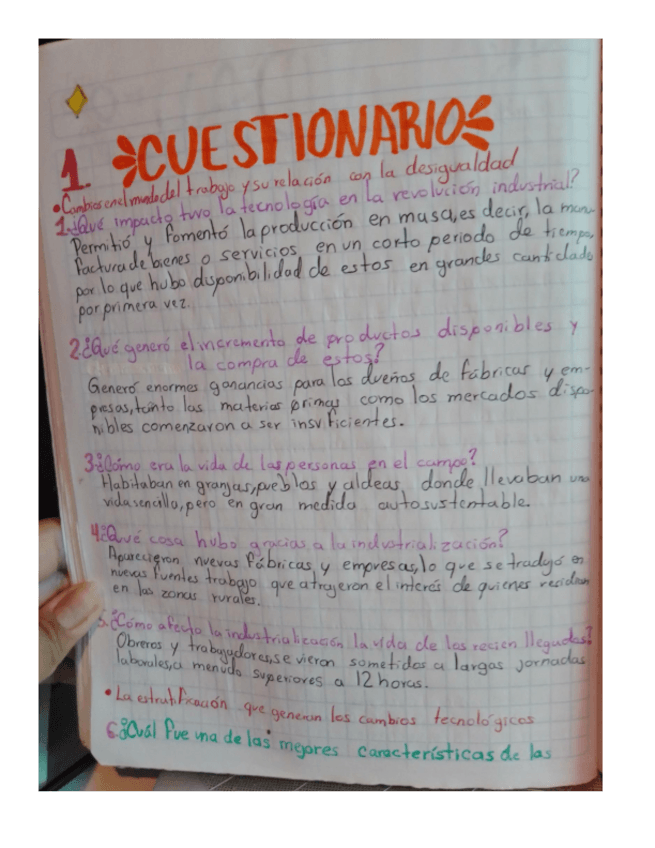 1. CUESTIONARIO
• Cambios en el mundo del trabajo y su relación con la desigualdad
1.¿Qué impacto tuvo la tecnología en la revolución industrial?
Permitió y fomentó la producción en masa, es decir, la manu-
factura de bienes o servicios en un corto periodo de tiempo,
por lo que hubo disponibilidad de estos en grandes cantidade
por primera vez.
2.¿Qué generó el incremento de productos disponibles y
la compra de estos?
Generó enormes ganancias para los dueños de fábricas y em-
presas, tanto las materias primas como los mercados dispo-
nibles comenzaron a ser insuficientes.
3.¿Cómo era la vida de las personas en el campo?
Habitaban en granjas, pueblos y aldeas, donde llevaban una
vida sencilla, pero en gran medida autosustentable.
4.¿Qué cosa hubo gracias a la industrialización?
Aparecieron nuevas fábricas, y empresas, lo que se tradujo en
nuevas fuentes trabajo que atrajeron el interés de quienes residían
en las zonas rurales.
5.¿Cómo afecto la industrialización la vida de los recien llegados?
Obreros y trabajadores, se vieron sometidos a largas jornadas
laborales, a menudo superiores a 12 horas.
• La estratificación que generan los cambios tecnológicos
6.¿Cuál fue una de las mejores características de las